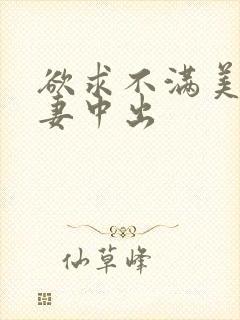 欲求不满美
妻中出
仙草峰